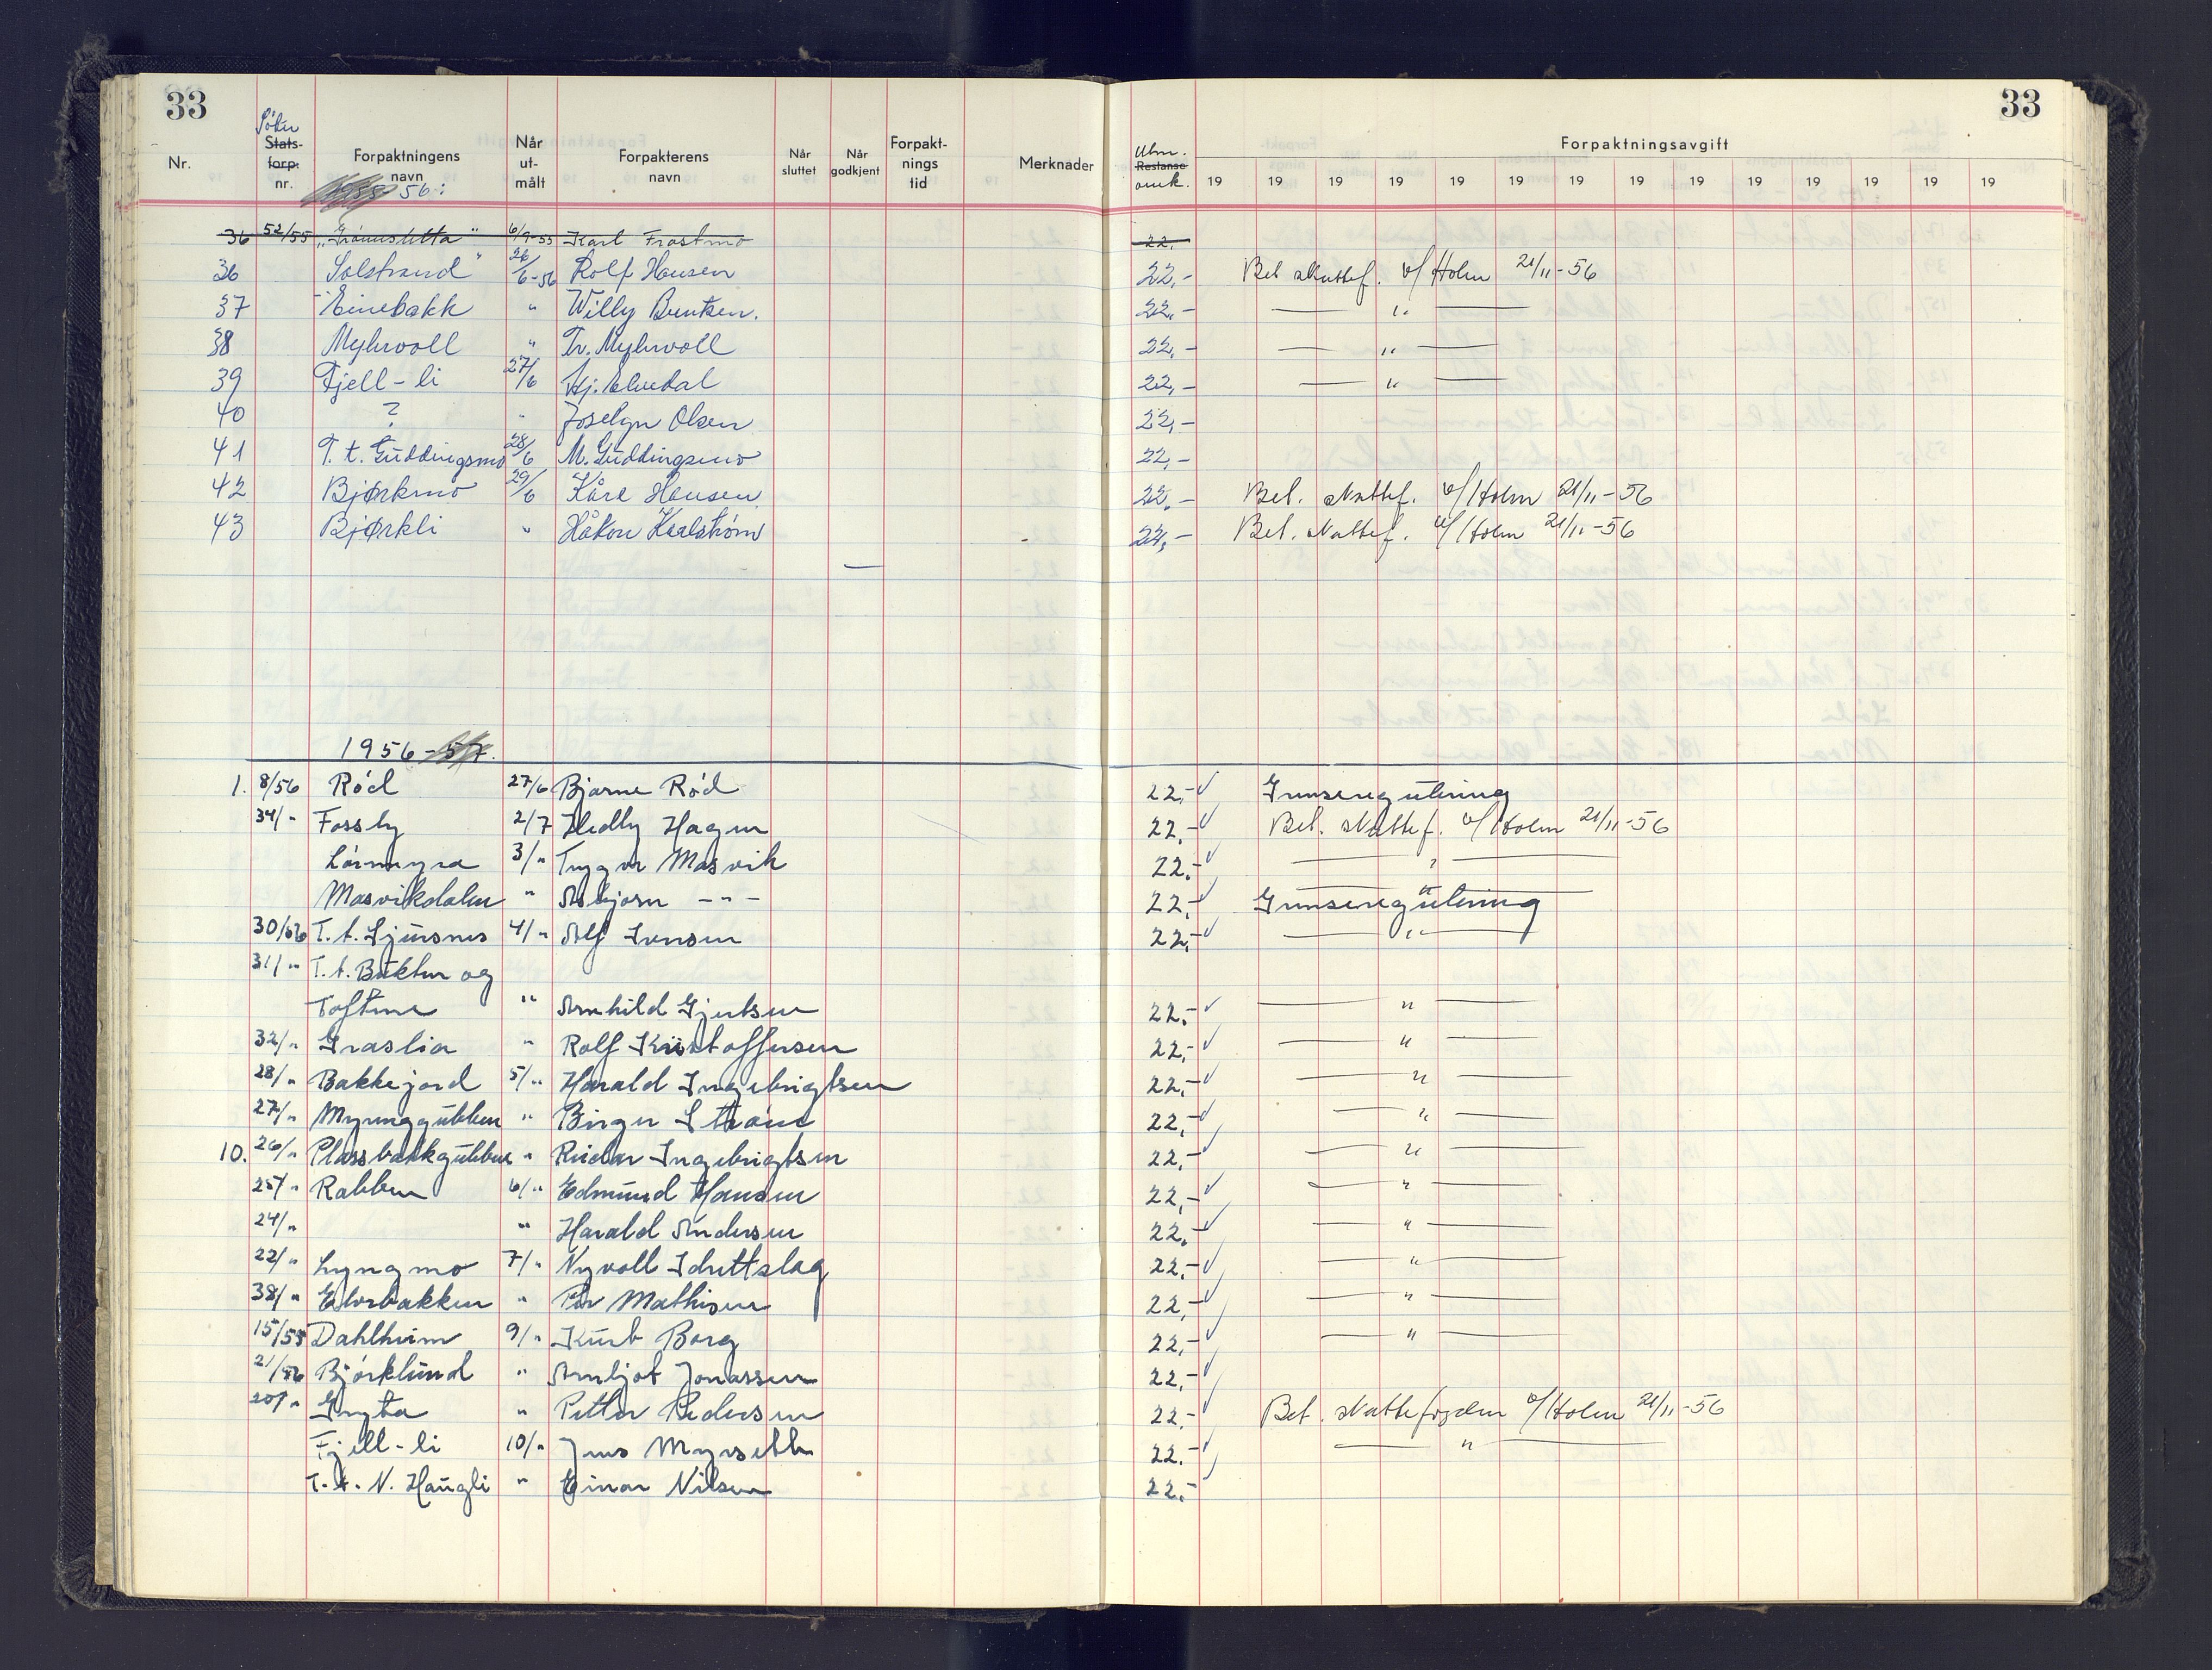 33 33
Søkn
Nr. Stats-forp. nr. Forpaktningens navn Når ut-målt Forpakterens navn Når sluttet Når godkjent Forpakt-nings tid Merknader Utm. Restanse omk. Forpaktningsavgift
19 19 19 19 19 19 19 19 19 19 19 19 19 19
56:
36 52/55 6/9-55 Karl Frostmo 22,
36 Solstrand" 26/6-56 Rolf Hansen 22,- Bet skattef. v/Holm 21/11-56
37 Einebakk " Willy Bentzen. 22,- — " —
38 Myhrvoll " Tr. Myhrvoll 22,- — " —
39 Fjell-li 27/6 Hj. Elvedal 22,- — " —
40 ? " Joselyn Olsen 22,-
41 T. t. Guddingsmo 28/6 M. Guddingsmo 22,-
42 Bjørkmo 29/6 Kåre Hansen 22.- Bet. skattef. v/Holm 21/11-56
43 Bjørkli " Håkon Karlstrøm 22,- Bet. skattef. v/Holm 21/11-56
1956-57.
1. 8/56 Rød 27/6 Bjarne Rød 22,- Grenseregulering
34/" Fossly 2/7 Hedly Hagen 22,- Bet. skattef. v/Holm 21/11-56
Lørmyra 3/" Trygve Masvik 22,- — " —
Masvikdalen " Asbjørn -"- 22,- Grenseregulering
30/56 T. t. Sjursnes 4/" Alf Iversen 22,- — " —
31/" T. t. Bukten og
Toftene " Arnhild Gjertsen 22,- — " —
32/" Graslia " Rolf Kristoffersen 22,- — " —
28/" Bakkejord 5/" Harald Ingebrigtsen 22,- — " —
27/" Myrenggubben " Birger Strand 22,- — " —
10. 26/" Plassbakkgubben " Reidar Ingebrigtsen 22,- — " —
25/" Rabben 6/" Edmund Hansen 22,- — " —
24/" " Harald Andersen 22,- — " —
22/" Lyngmo 7/" Nyvoll Idrettslag 22,- — " —
38/" Elvebakken " Per Mathisen 22,- — " —
15/55 Dahlheim 9/" Kurt Borg 22,- — " —
21/56 Bjørklund " Arnljot Jonassen 22,-
20/" Gryta " Petter Pedersen 22,- Bet. skattefogden v/Holm 21/11-56
Fjell-li 10/" Jens Myrseth 22.- — " —
T. t. N. Haugli " Einar Nilsen 22,-